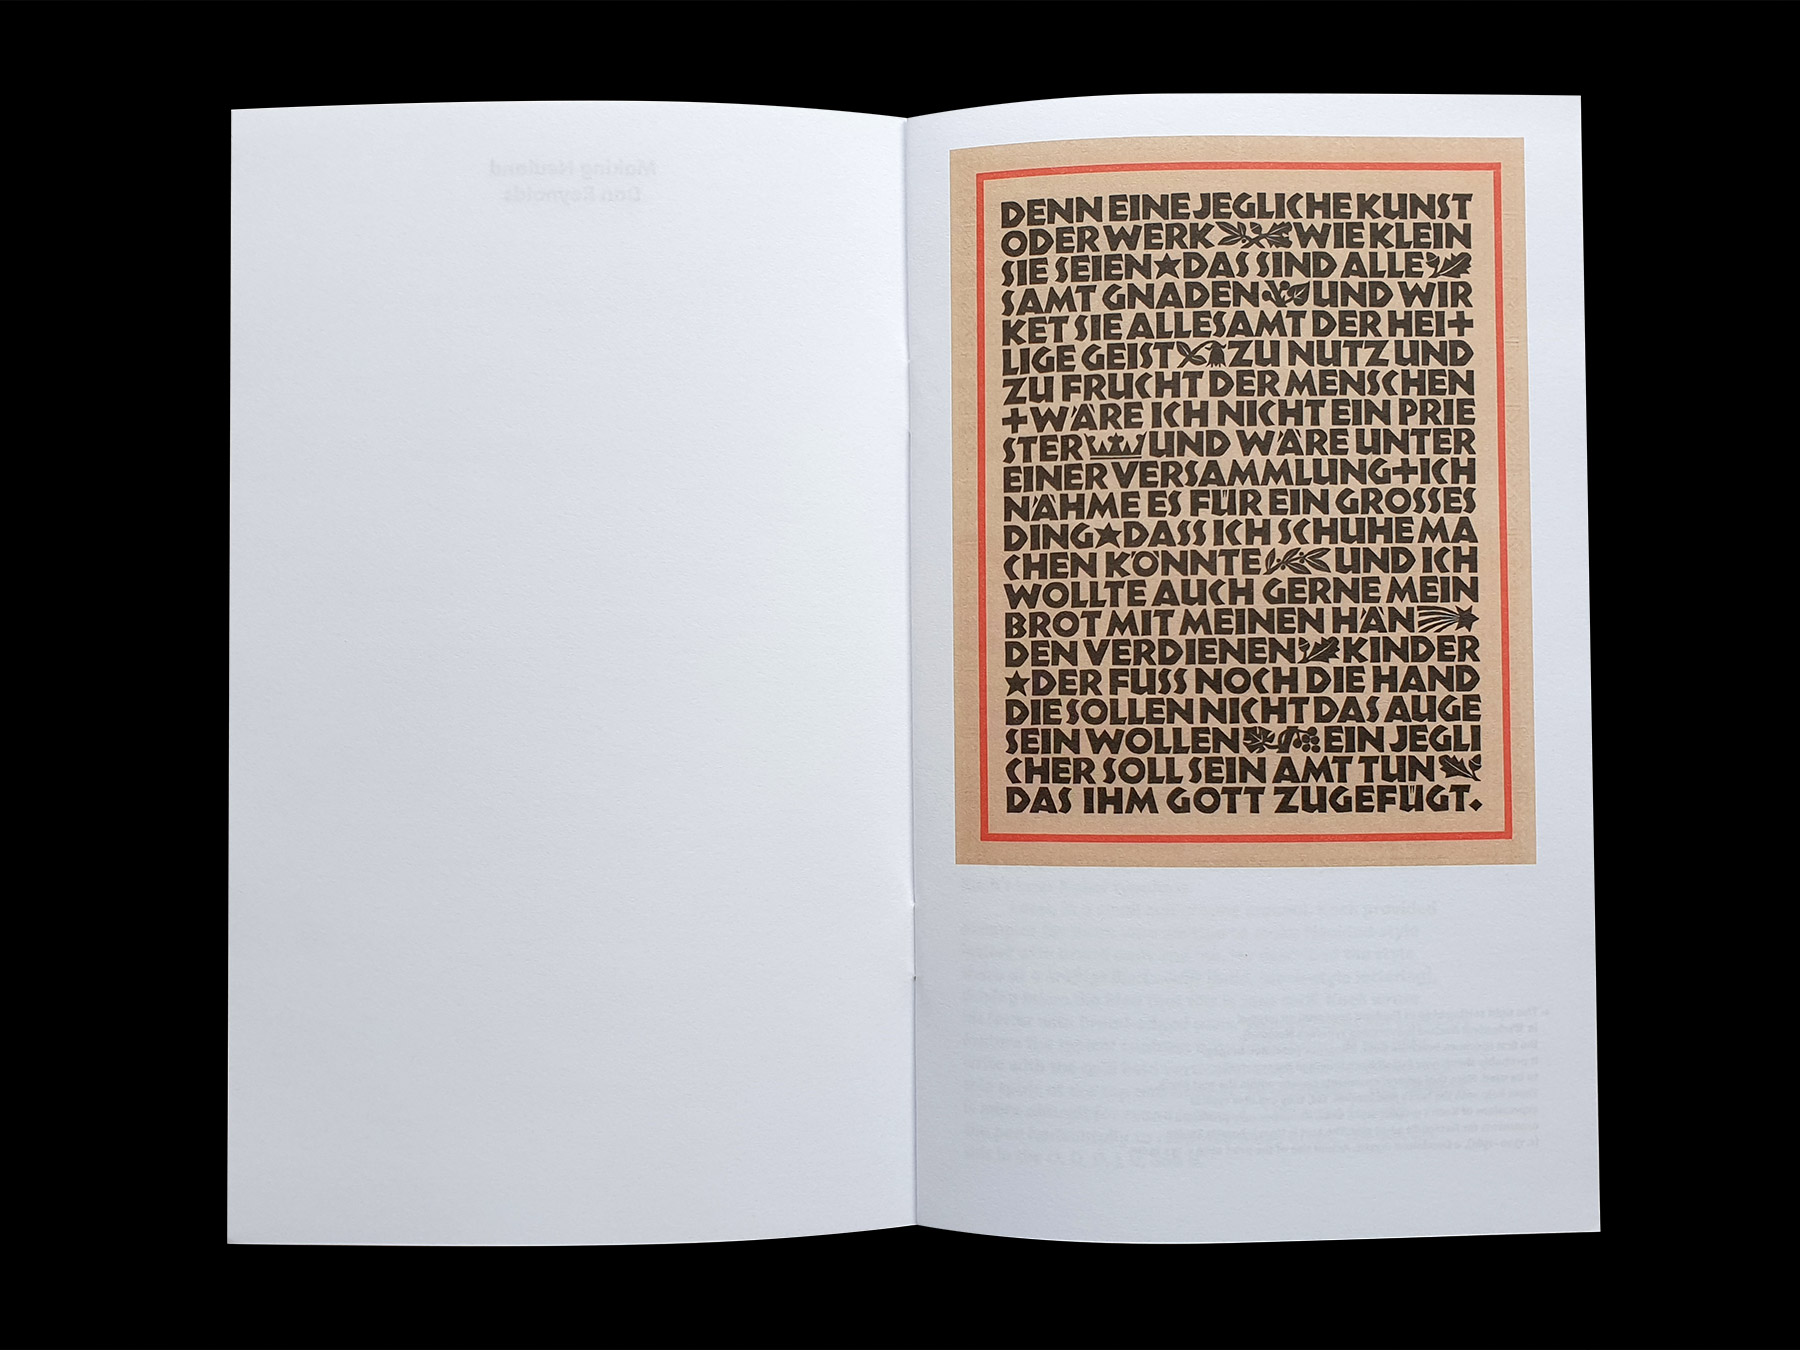 Making Neuland
Dan Reynolds
DENN EINE JEGLICHE KUNST
ODER WERK WIE KLEIN
SIE SEIEN★DAS SIND ALLE
SAMT GNADEN UND WIR
KET SIE ALLESAMT DER HEI+
LIGE GEIST ZU NUTZ UND
ZU FRUCHT DER MENSCHEN
+WÄRE ICH NICHT EIN PRIE
STER UND WÄRE UNTER
EINER VERSAMMLUNG+ICH
NÄHME ES FÜR EIN GROSSES
DING★DASS ICH SCHUHE MA
CHEN KÖNNTE UND ICH
WOLLTE AUCH GERNE MEIN
BROT MIT MEINEN HÄN
DEN VERDIENEN KINDER
★DER FUSS NOCH DIE HAND
DIE SOLLEN NICHT DAS AUGE
SEIN WOLLEN EIN JEGLI
CHER SOLL SEIN AMT TUN
DAS IHM GOTT ZUGEFÜGT.